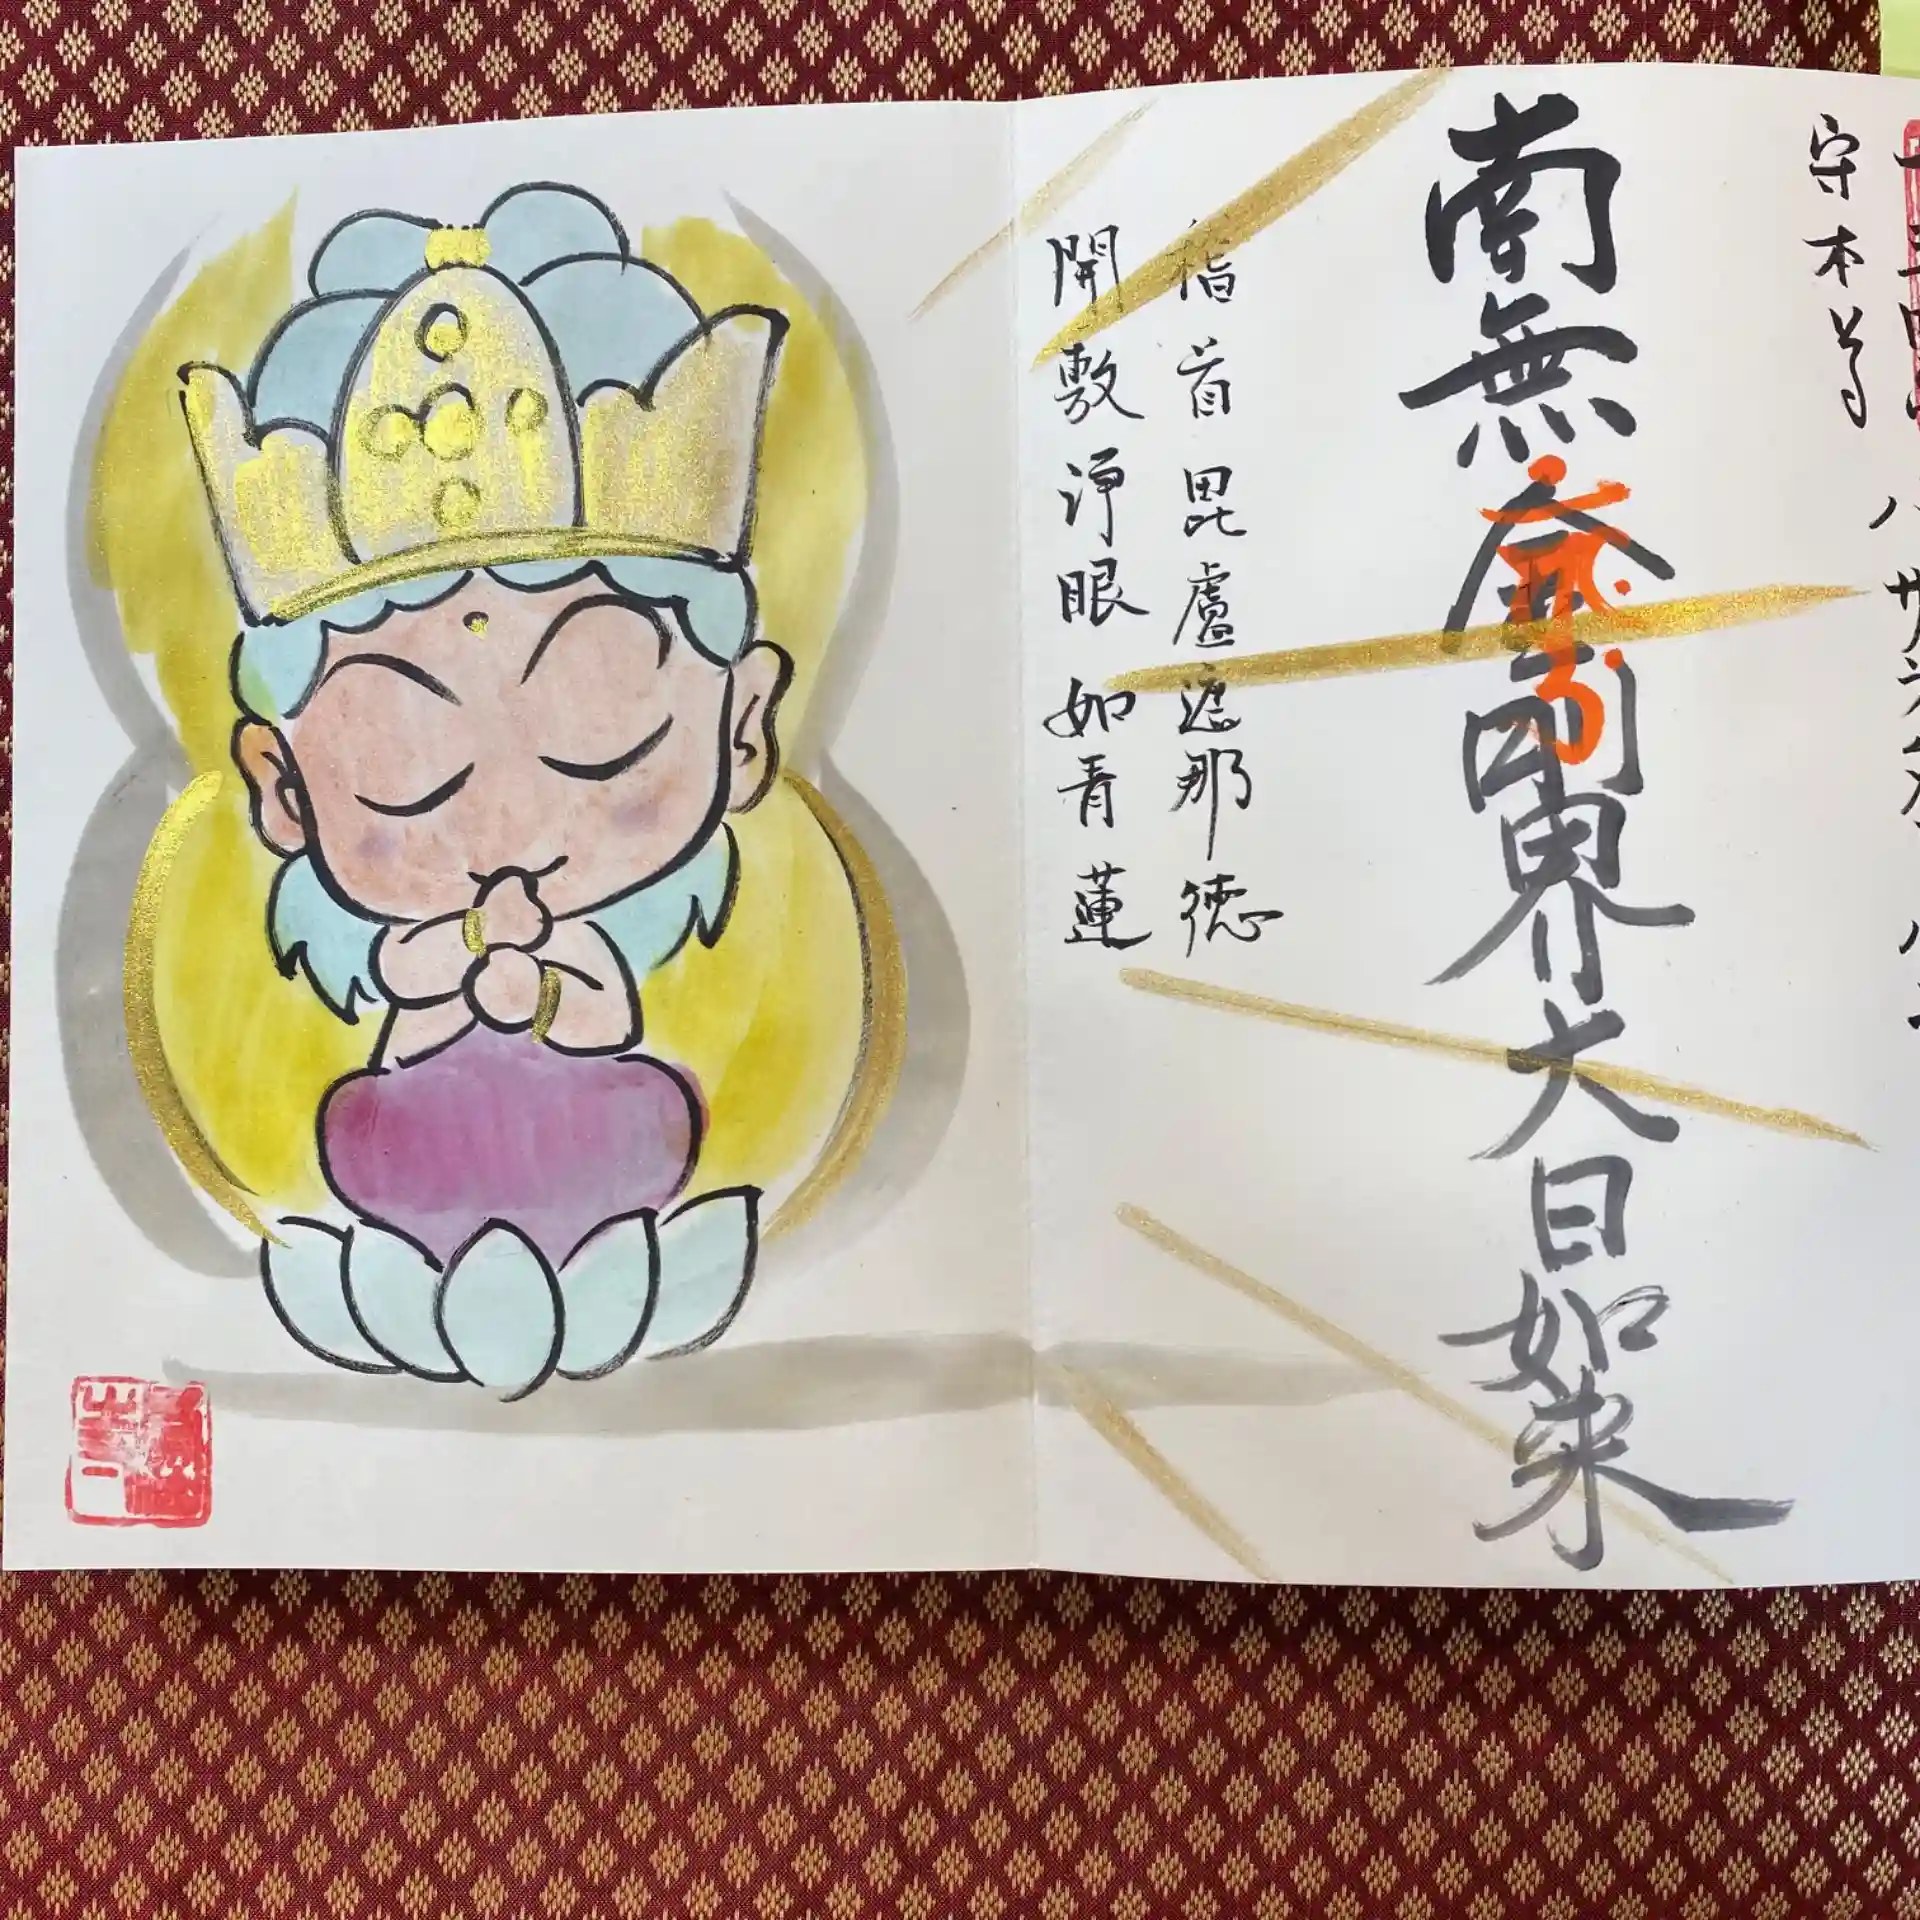 守本尊
南無金剛界大日如来
稽首毘盧遮那徳
開敷浄眼如青蓮